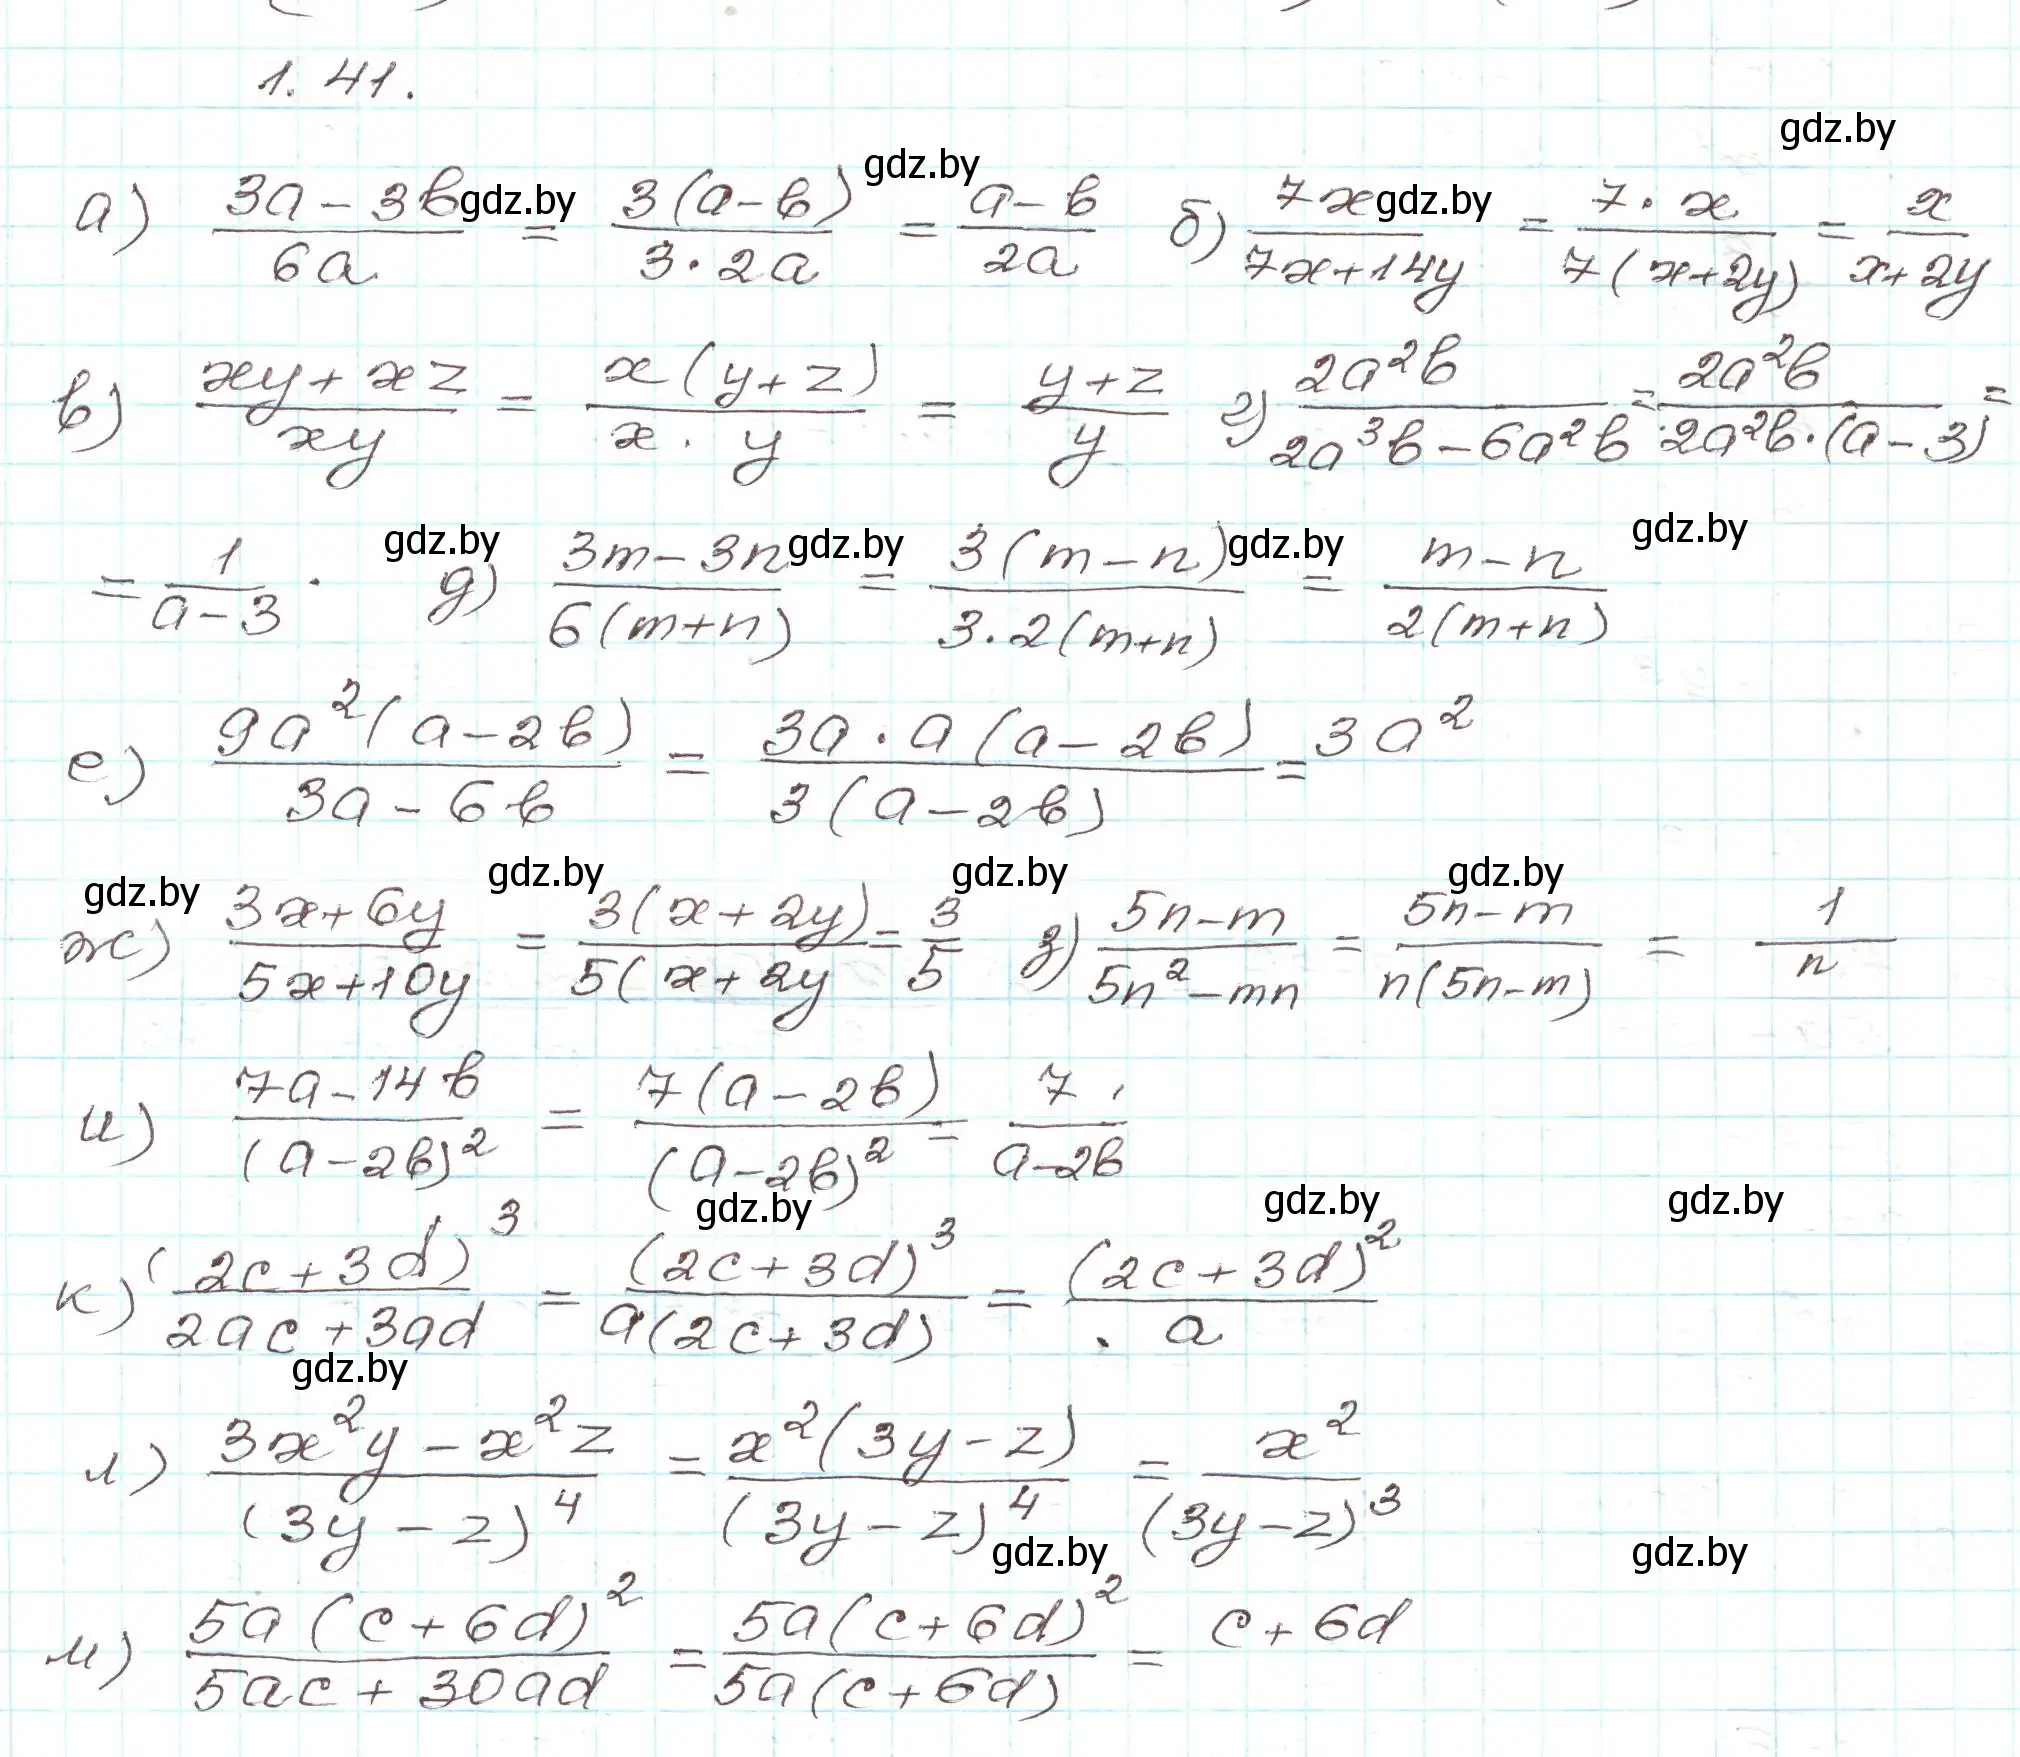 1.41.
gdz.by
а) \frac{3a-3b}{6a} = \frac{3(a-b)}{3·2a} = \frac{a-b}{2a} б) \frac{7x}{7x+14y} = \frac{7·x}{7(x+2y)} = \frac{x}{x+2y}
gdz.by gdz.by gdz.by
в) \frac{xy+xz}{xy} = \frac{x(y+z)}{x·y} = \frac{y+z}{y} г) \frac{2a^2b}{2a^3b-6a^2b} = \frac{2a^2b}{2a^2b·(a-3)} =
gdz.by gdz.by gdz.by gdz.by
= \frac{1}{a-3}. д) \frac{3m-3n}{6(m+n)} = \frac{3(m-n)}{3·2(m+n)} = \frac{m-n}{2(m+n)}
е) \frac{9a^2(a-2b)}{3a-6b} = \frac{3a·a(a-2b)}{3(a-2b)} = 3a^2
gdz.by gdz.by gdz.by gdz.by
ж) \frac{3x+6y}{5x+10y} = \frac{3(x+2y)}{5(x+2y} = \frac{3}{5} з) \frac{5n-m}{5n^2-mn} = \frac{5n-m}{n(5n-m)} = \frac{1}{n}
и) \frac{7a-14b}{(a-2b)^2} = \frac{7(a-2b)}{(a-2b)^2} = \frac{7}{a-2b}
gdz.by gdz.by gdz.by
к) \frac{(2c+3d)^3}{2ac+3ad} = \frac{(2c+3d)^3}{a(2c+3d)} = \frac{(2c+3d)^2}{a}
gdz.by
л) \frac{3x^2y-x^2z}{(3y-z)^4} = \frac{x^2(3y-z)}{(3y-z)^4} = \frac{x^2}{(3y-z)^3}
gdz.by gdz.by
м) \frac{5a(c+6d)^2}{5ac+30ad} = \frac{5a(c+6d)^2}{5a(c+6d)} = c+6d